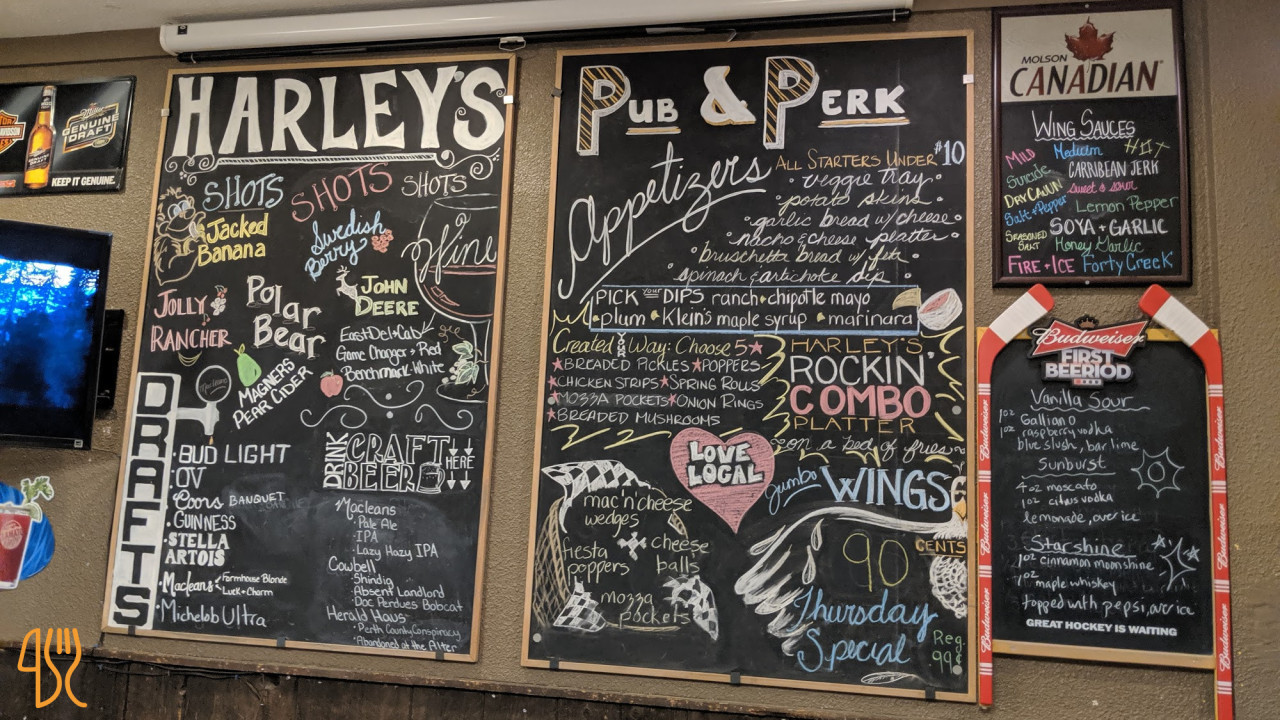 GENUINE DRAFT
KEEP IT GENUINE.
HARLEY'S
SHOTS SHOTS SHOTS
Jacked
Banana
Swedish
Berry
Wine
JOLLY
RANCHER
Polar
Bear
JOHN
DEERE
East Dell Cab
Game Changer Red
Benchmark White
MAGNERS
PEAR CIDER
DRAFTS
BUD LIGHT
OV
Coors BANQUET
GUINNESS
STELLA
ARTOIS
Macleans Farmhouse Blonde
Luck + Charm
Michelob Ultra
DRINK CRAFT BEER HERE
Macleans
Pale Ale
IPA
Lazy Hazy IPA
Cowbell
Shindig
Absent Landlord
Doc Perdues Bobcat
Herald Haus
Perth County Conspiracy
Abandoned at the Alter
PUB & PERK
Appetizers
ALL STARTERS UNDER $10
veggie tray
potato skins
garlic bread w/ cheese
nacho & cheese platter
bruschetta bread w/ feta
spinach & artichoke dip
PICK your DIPS ranch chipotle mayo
plum Klein's maple syrup marinara
Created Way: Choose 5
BREADED PICKLES POPPERS
CHICKEN STRIPS SPRING ROLLS
MOZZA POCKETS ONION RINGS
BREADED MUSHROOMS
HARLEY'S
ROCKIN'
COMBO
PLATTER
on a bed of fries
LOVE
LOCAL
mac 'n' cheese
wedges
fiesta
poppers
cheese
balls
mozza
pockets
jumbo WINGS
90 CENTS
Thursday
Special
Reg.
99¢
MOLSON
CANADIAN
WING SAUCES
MILD Medium HOT
Suicide CARIBBEAN JERK
DRY CAJUN sweet & sour
Salt + Pepper Lemon Pepper
SEASONED SALT SOYA + GARLIC
Honey Garlic
FIRE + ICE Forty Creek
Budweiser
FIRST
BEERIOD
Vanilla Sour
1oz Galliano
1oz raspberry vodka
blue slush, bar lime
Sunburst
4oz moscato
1oz citrus vodka
lemonade, over ice
Starshine
1oz cinnamon moonshine
1oz maple whiskey
topped with pepsi, over ice
GREAT HOCKEY IS WAITING
Budweiser
Budweiser